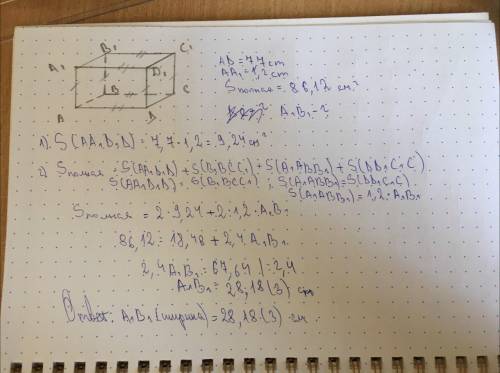 B₁ C₁
A₁ D₁
B C
A D
AD = 7,7 cm
AA₁ = 1,2 cm
Sполная = 86,12 см²
A₁B₁ - ?
1). S(AA₁D₁D) = 7,7 · 1,2 = 9,24 см²
2) Sполная = S(AA₁D₁D) + S(B₁BCC₁) + S(A₁ABB₁) + S(DD₁C₁C)
S(AA₁D₁D) = S(B₁BCC₁) ; S(A₁ABB₁) = S(DD₁C₁C)
S(A₁ABB₁) = 1,2 · A₁B₁
Sполная = 2 · 9,24 + 2 · 1,2 · A₁B₁
86,12 = 18,48 + 2,4 A₁B₁
2,4 A₁B₁ = 67,64 | : 2,4
A₁B₁ = 28,18(3) cm
Ответ: A₁B₁ (ширина) = 28,18(3) см